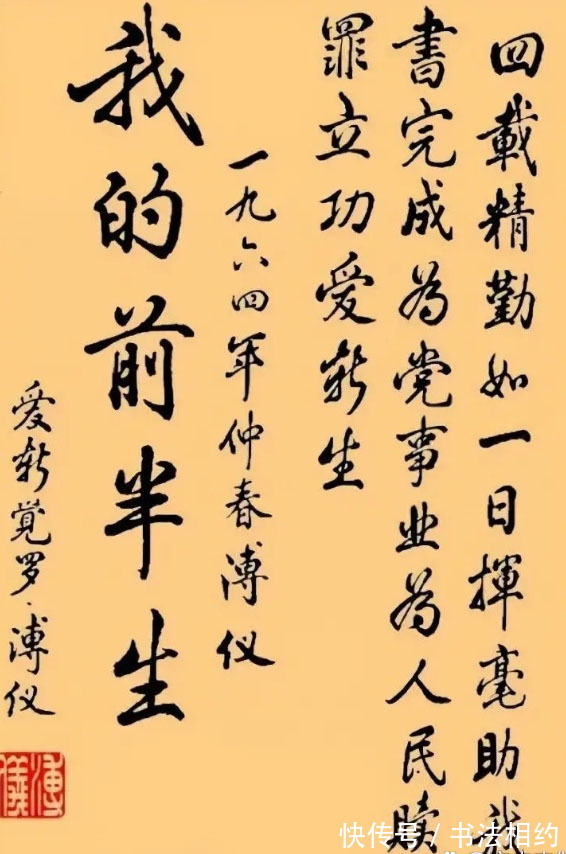 四載精勤如一日揮毫助我
書完成為党事业為人民赎
罪立功爱新生
一九六四年仲春溥仪
我的前半生
爱新觉罗·溥仪
溥儀
快传号/书法相约